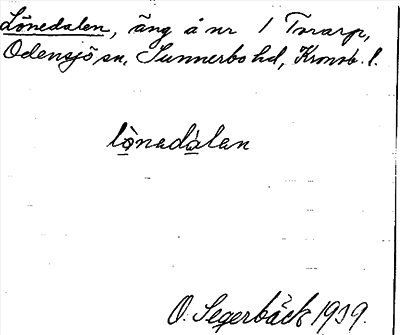 Lönedalen, äng å nr 1 Torarp,
Odensjö sn, Sunnerbo hd, Kronob. l.
lònedàlen
O. Segerbäck 1939.